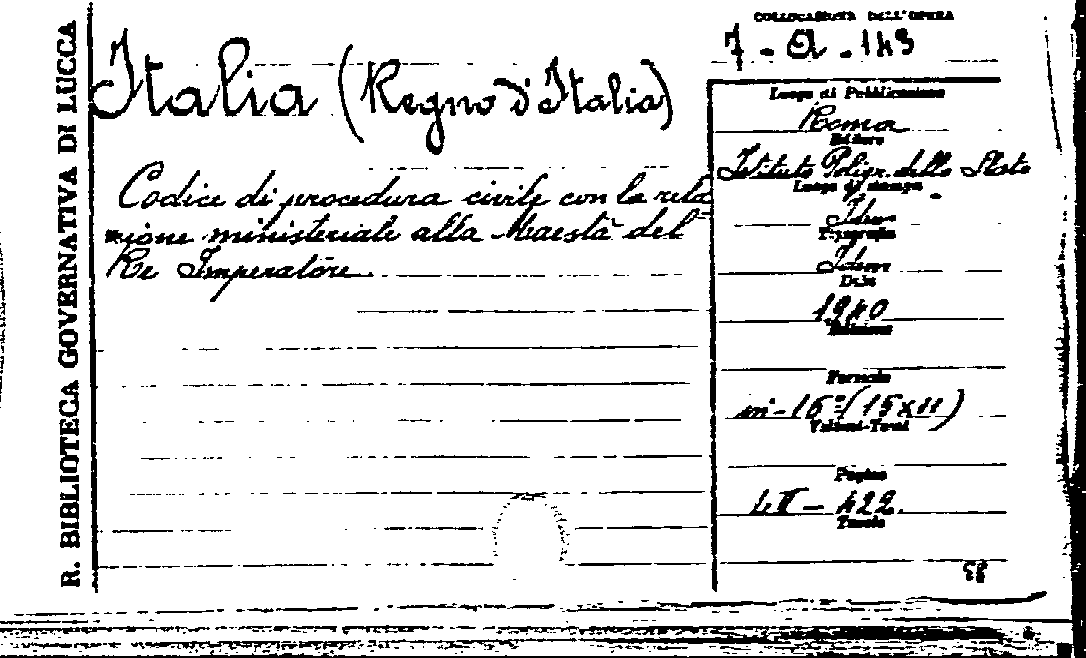 R. BIBLIOTECA GOVERNATIVA DI LUCCA
COLLOCAZIONE DELL'OPERA
7 - Q - 143
Italia (Regno d'Italia)
Codice di procedura civile con la rela
zione ministeriale alla Maestà del
Re Imperatore.
Luogo di Pubblicazione
Roma
Editore
Istituto Poligr. dello Stato
Luogo di stampa
Idem
Tipografia
Idem
Data
1940
Edizione
Formato
in-16º (15x11)
Volumi-Tomi
Pagine
LII - 422.
Tavole